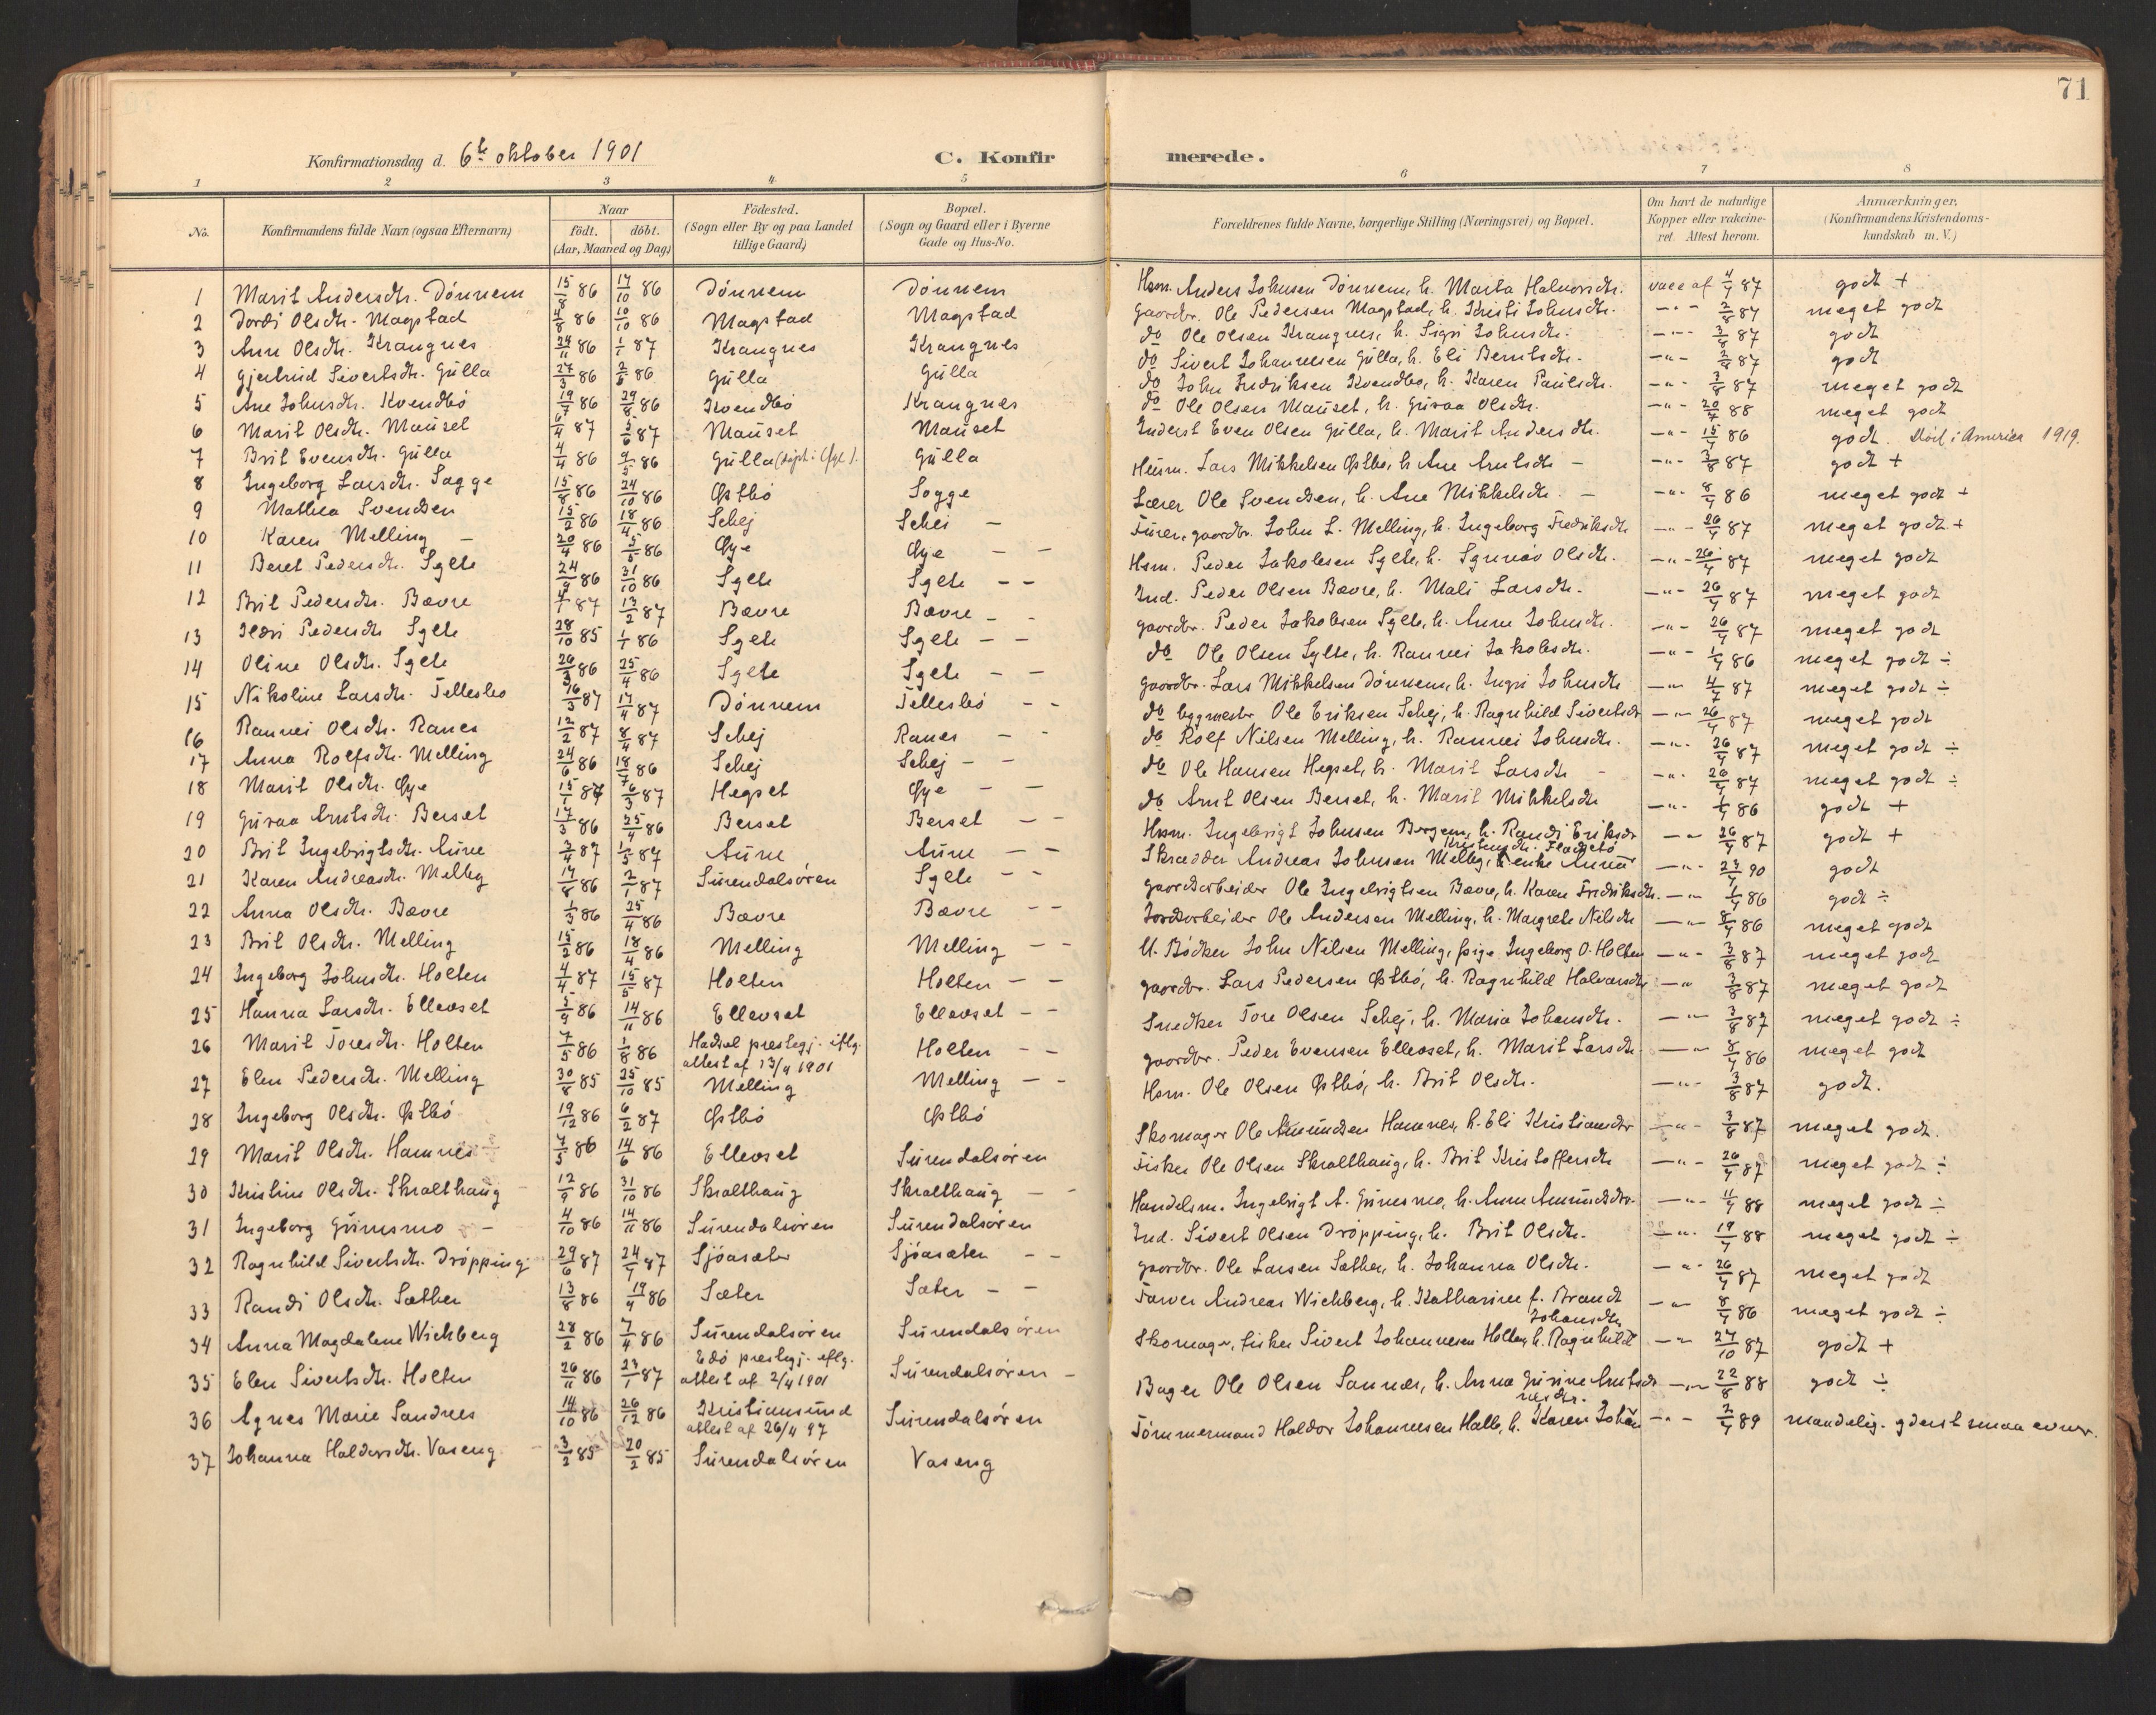 71
Konfirmationsdag d. 6te oktober 1901
C. Konfir merede.
1 2 3 4 5 6 7 8
No. Konfirmandens fulde Navn (ogsaa Efternavn) Naar födt. döbt. (Aar, Maaned og Dag) Födested. (Sogn eller By og paa Landet tillige Gaard) Bopæl. (Sogn og Gaard eller i Byerne Gade og Hus-No. Forældrenes fulde Navne, borgerlige Stilling (Næringsvei) og Bopæl. Om havt de naturlige Kopper eller vakcineret. Attest herom. Anmærkninger. (Konfirmandens Kristendomskundskab m. V.)
1 Marit Andersdtr. Dönnem 15/8 86 17/10 86 Dönnem Dönnem Hsm. Anders Johnsen Dönnem, h. Marta Halvorsdtr. vacc af 4/7 87 godt +
2 Dordi Olsdtr. Magstad 4/8 86 10/10 86 Magstad Magstad gaardbr. Ole Pedersen Magstad, h. Kristi Johnsdtr. -"- 3/8 87 meget godt
3 Ane Olsdtr. Krangnes 24/11 86 1/1 87 Krangnes Krangnes do Ole Olsen Krangnes, h. Sigri Johnsdtr. -"- 3/8 87 godt
4 Gjertrud Sivertsdtr. Gulla 27/3 86 2/6 86 Gulla Gulla do Sivert Johannesen Gulla, h. Eli Berntsdtr. -"- 3/8 87 godt
5 Ane Johnsdtr. Kvendbö 19/7 86 29/8 86 Kvendbö Krangnes do John Fredriksen Kvendbö, h. Karen Paulsdtr. -"- 3/8 87 meget godt
6 Marit Olsdtr. Mauset 6/4 87 5/6 87 Mauset Mauset do Ole Olsen Mauset, h. Guroa Olsdtr. -"- 20/7 88 meget godt
7 Brit Evensdtr. Gulla 4/4 86 9/5 86 Gulla (döpt i Öye). Gulla Inderst Even Olsen Gulla, h. Marit Andersdtr. -"- 15/7 86 godt. Död i America 1919.
8 Ingeborg Larsdtr. Sogge 15/8 86 24/10 86 Østbö Sogge Husm. Lars Mikkelsen Østbö, h. Ane Arntsdtr -"- 3/8 87 godt +
9 Mathea Svendsen 15/2 86 18/4 86 Schej Schei - Lærer Ole Svendsen, h. Ane Mikkelsdtr. -"- 8/7 86 meget godt +
10 Karen Melling - 20/4 86 5/5 86 Øye Øye - - Furer, gaardbr. John L. Melling, h. Ingeborg Fredriksdtr -"- 26/7 87 meget godt +
11 Beret Pedersdtr. Sylte 24/9 86 31/10 86 Sylte Sylte - - Hsm. Peder Jakobsen Sylte, h. Synnöv Olsdtr. -"- 26/7 87 meget godt
12 Brit Pedersdtr. Bævre 4/1 87 13/2 87 Bævre Bævre - - Ind. Peder Olsen Bævre, h. Mali Larsdtr. -"- 26/7 87 meget godt
13 Pedersdtr Sylte 28/10 85 1/1 86 Sylte Sylte - - gaardbr. Peder Jakobsen Sylte, h. Anne Johnsdtr. -"- 26/7 87 meget godt
14 Oline Olsdtr. Sylte 26/3 86 25/4 86 Sylte Sylte - - do Ole Olsen Sylte, h. Rannei Jakobsdtr. -"- 1/7 86 meget godt ÷
15 Nikoline Larsdtr. Tellesbö 16/3 87 17/4 87 Dönnem Tellesbö - - gaardbr. Lars Mikkelsen Dönnem, h. Ingri Johnsdtr -"- 4/7 87 meget godt ÷
16 Rannei Olsdtr. Ranes 12/2 87 8/4 87 Schej Ranes - - do byggmester Ole Eriksen Schej, h. Ragnhild Sivertsdtr -"- 26/7 87 meget godt
17 Anna Rolfsdtr. Melling 24/6 86 18/7 86 Schej Schej - - do Rolf Nilsen Melling, h. Rannei Johnsdtr. -"- 26/7 87 meget godt ÷
18 Marit Olsdtr. Øye 15/1 87 6/3 87 Hegset Øye - - do Ole Hansen Hegset, h. Marit Larsdtr -"- 26/7 87 meget godt ÷
19 Guroa Arntsdtr. Berset 17/3 86 25/4 86 Berset Berset - - do Arnt Olsen Berset, h. Marit Mikkelsdtr -"- 1/7 86 godt +
20 Brit Ingebrigtsdtr. Aune 3/4 87 1/5 87 Aune Aune - - Hsm. Ingebrigt Johnsen Bergem, h. Randi Eriksdtr -"- 26/7 87 godt +
21 Karen Andreasdtr. Melby 14/8 86 2/1 87 Surendalsören Sylte - - Skrædder Andreas Johnsen Melby, enke Anna -"- 90 godt
22 Anna Olsdtr. Bævre 1/3 86 25/4 86 Bævre Bævre - - gaardarbeider Ole Ingebrigtsen Bævre, h. Karen Fredriksdtr. -"- 1/7 86 godt ÷
23 Brit Olsdtr. Melling 15/2 86 18/4 86 Melling Melling - - Jordarbeider Ole Andersen Melling, h. Margrete Nilsdtr -"- 8/7 86 meget godt
24 Ingeborg Johnsdtr. Holten 4/4 87 15/5 87 Holten Holten - - U. Bödker John Nilsen Melling, pige Ingeborg O. Holten -"- 3/8 87 meget godt
25 Hanna Larsdtr. Ellevset 5/9 86 14/11 86 Ellevset Ellevset - - gaardbr. Lars Pedersen Østbö, h. Ragnhild Halvorsdtr -"- 3/8 87 meget godt
26 Marit Toresdtr. Holten 7/5 86 1/8 86 Hadsel prestegj. iflg. attest af 13/4 1901 Holten - - Snedker Tore Olsen Schej, h. Maria Johansdtr. -"- 3/8 87 meget godt ÷
27 Elen Pedersdtr. Melling 30/8 85 25/10 85 Melling Melling - - gaardbr. Peder Evensen Ellevset, h. Marit Larsdtr. -"- 8/7 86 meget godt
28 Ingeborg Olsdtr. Østbö 19/12 86 6/2 87 Østbö Østbö Hsm. Ole Olsen Østbö, h. Brit Olsdtr. -"- 3/8 87 godt.
29 Marit Olsdtr. Hamnes 7/5 86 14/6 86 Ellevset Surendalsören Skomager Ole Amundsen Hamnes, h. Eli Kristiansdtr -"- 3/8 87 meget godt.
30 Kristine Olsdtr. Skralthaug 12/9 86 31/10 86 Skralthaug Skralthaug - - Fisker Ole Olsen Skralthaug, h. Brit Kristoffersdtr -"- 26/7 87 meget godt ÷
31 Ingeborg Grimsmo - 4/10 86 14/11 86 Surendalsören Surendalsören Handelsm. Ingebrigt A. Grimsmo, h. Anne Amundsdtr. -"- 11/7 88 meget godt ÷
32 Ragnhild Sivertsdtr. Dröpping 29/6 87 24/7 87 Sjöasæter Sjöasæter - - Ind. Sivert Olsen Dröpping, h. Brit Olsdtr. -"- 19/7 88 meget godt ÷
33 Randi Olsdtr. Sæther 13/8 86 19/9 86 Sæter Sæter - - gaardbr. Ole Larsen Sæther, h. Johanna Olsdtr. -"- 26/7 87 meget godt
34 Anna Magdalene Wichberg 28/2 86 7/4 86 Surendalsören Surendalsören Farver Andreas Wichberg, h. Katharine f. Brandt -"- 8/7 86 meget godt ÷
35 Elen Sivertsdtr. Holten 26/11 86 23/1 87 Edö prestegj. iflg. attest af 2/4 1901 Surendalsören - Skomager, fisker Sivert Johannesen Holten, h. Ragnhild Johansdtr -"- 27/10 87 godt +
36 Agnes Marie Sandnes 14/10 86 26/12 86 Kristiansund attest af 26/4 97 Surendalsören Bager Ole Olsen Sannes, h. Anna Gurine Arntsdtr -"- 22/8 88 godt ÷
37 Johanna Haldorsdtr. Vaseng 3/2 85 20/2 85 Surendalsören Vaseng Tömmermand Haldor Johannesen Halle, h. Karen Johannesdtr. -"- 2/7 89 maadelig. yderst smaa evner.